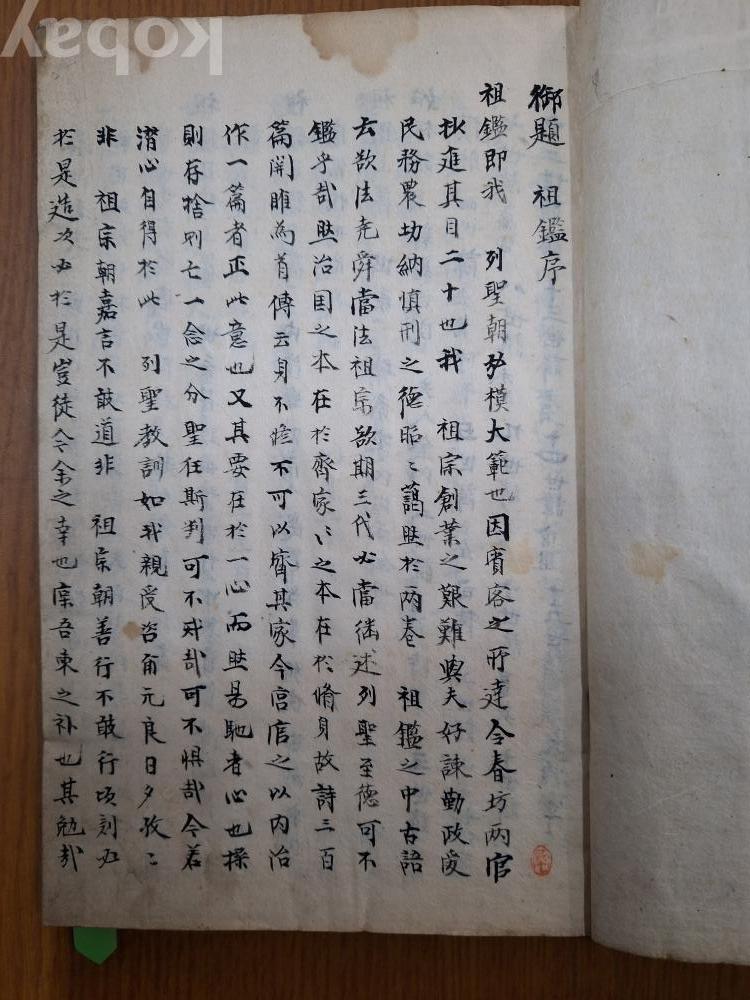 御題 祖鑑序
祖鑑即我 列聖朝弘模大範也因賓客之所達令春坊兩官
抄進其目二十也我 祖宗創業之艱難與夫好諫勤政愛
民務農功納慎刑之德昭〻藹然於兩卷 祖鑑之中古語
云欲法堯舜當法祖宗欲期三代必當繼述列聖至德可不
鑑乎哉然治国之本在於齊家〻之本在於脩身故詩三百
篇関雎為首傳云身不脩不可以齊其家今宮官之以内治
作一篇者正此意也又其要在於一心而然易馳者心也操
則存捨則亡一念之分聖狂斯判可不戒哉可不惧哉今若
潛心自得於此 列聖教訓如我親受咨爾元良日夕孜〻
非 祖宗朝嘉言不敢道非 祖宗朝善行不敢行頃刻必
於是造次必於是豈徒今余之幸也庶吾東之補也其勉哉
kobay